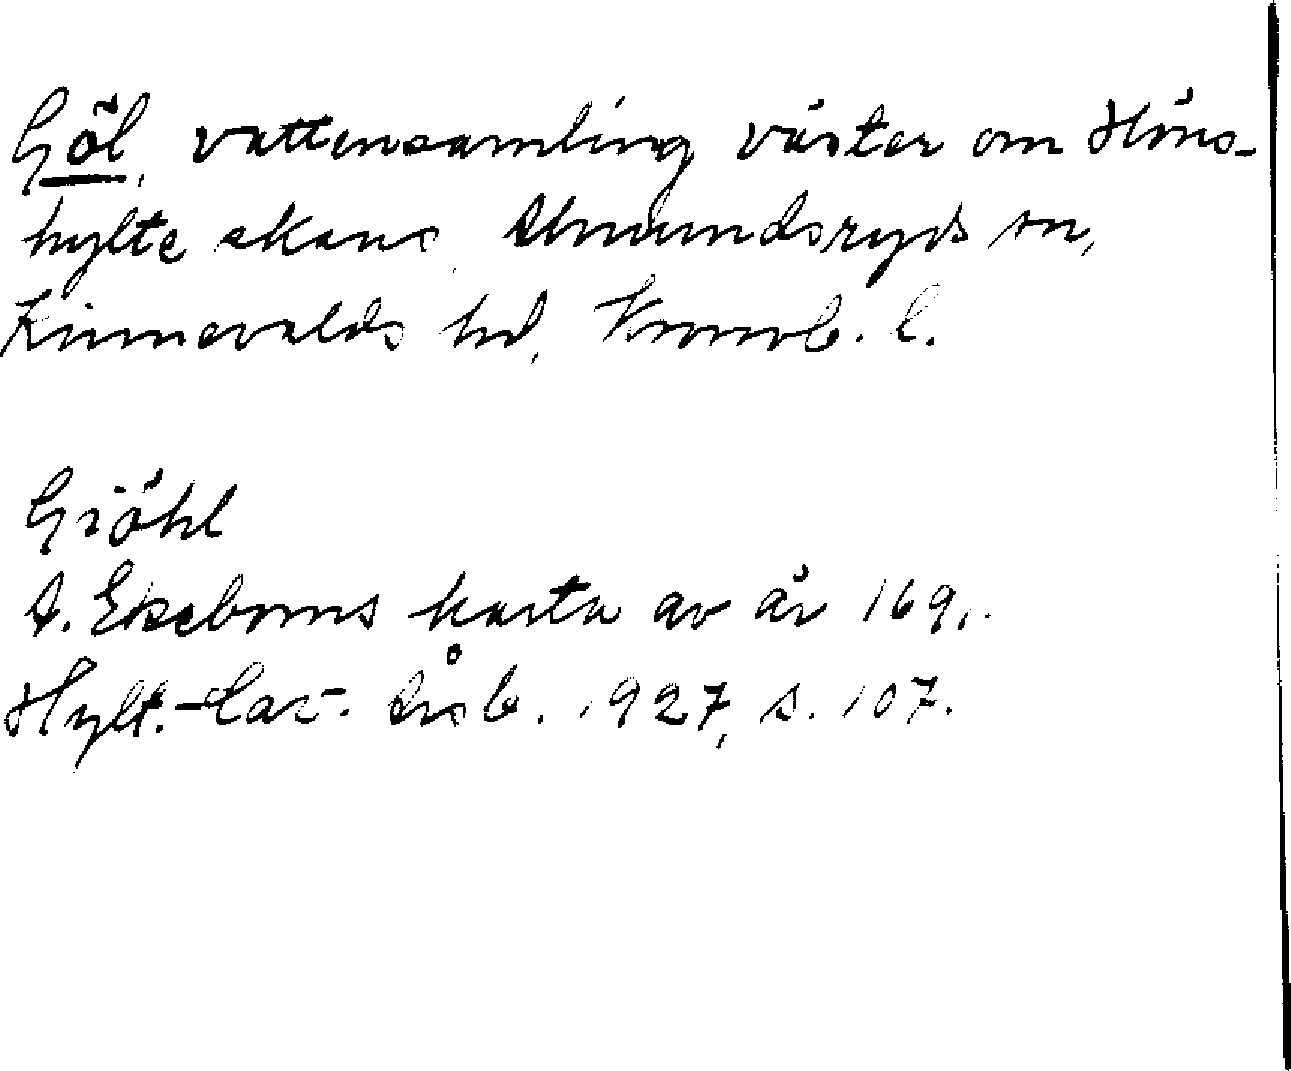 Göl, vattensamling väster om Höns-
hylte skans, Almundsryds sn,
Kinnevalds hd, Kronob. l.
Giöhl
A. Ekeboms karta av år 169,.
Hylt.-Cav. Årsb. 1927, s. 107.